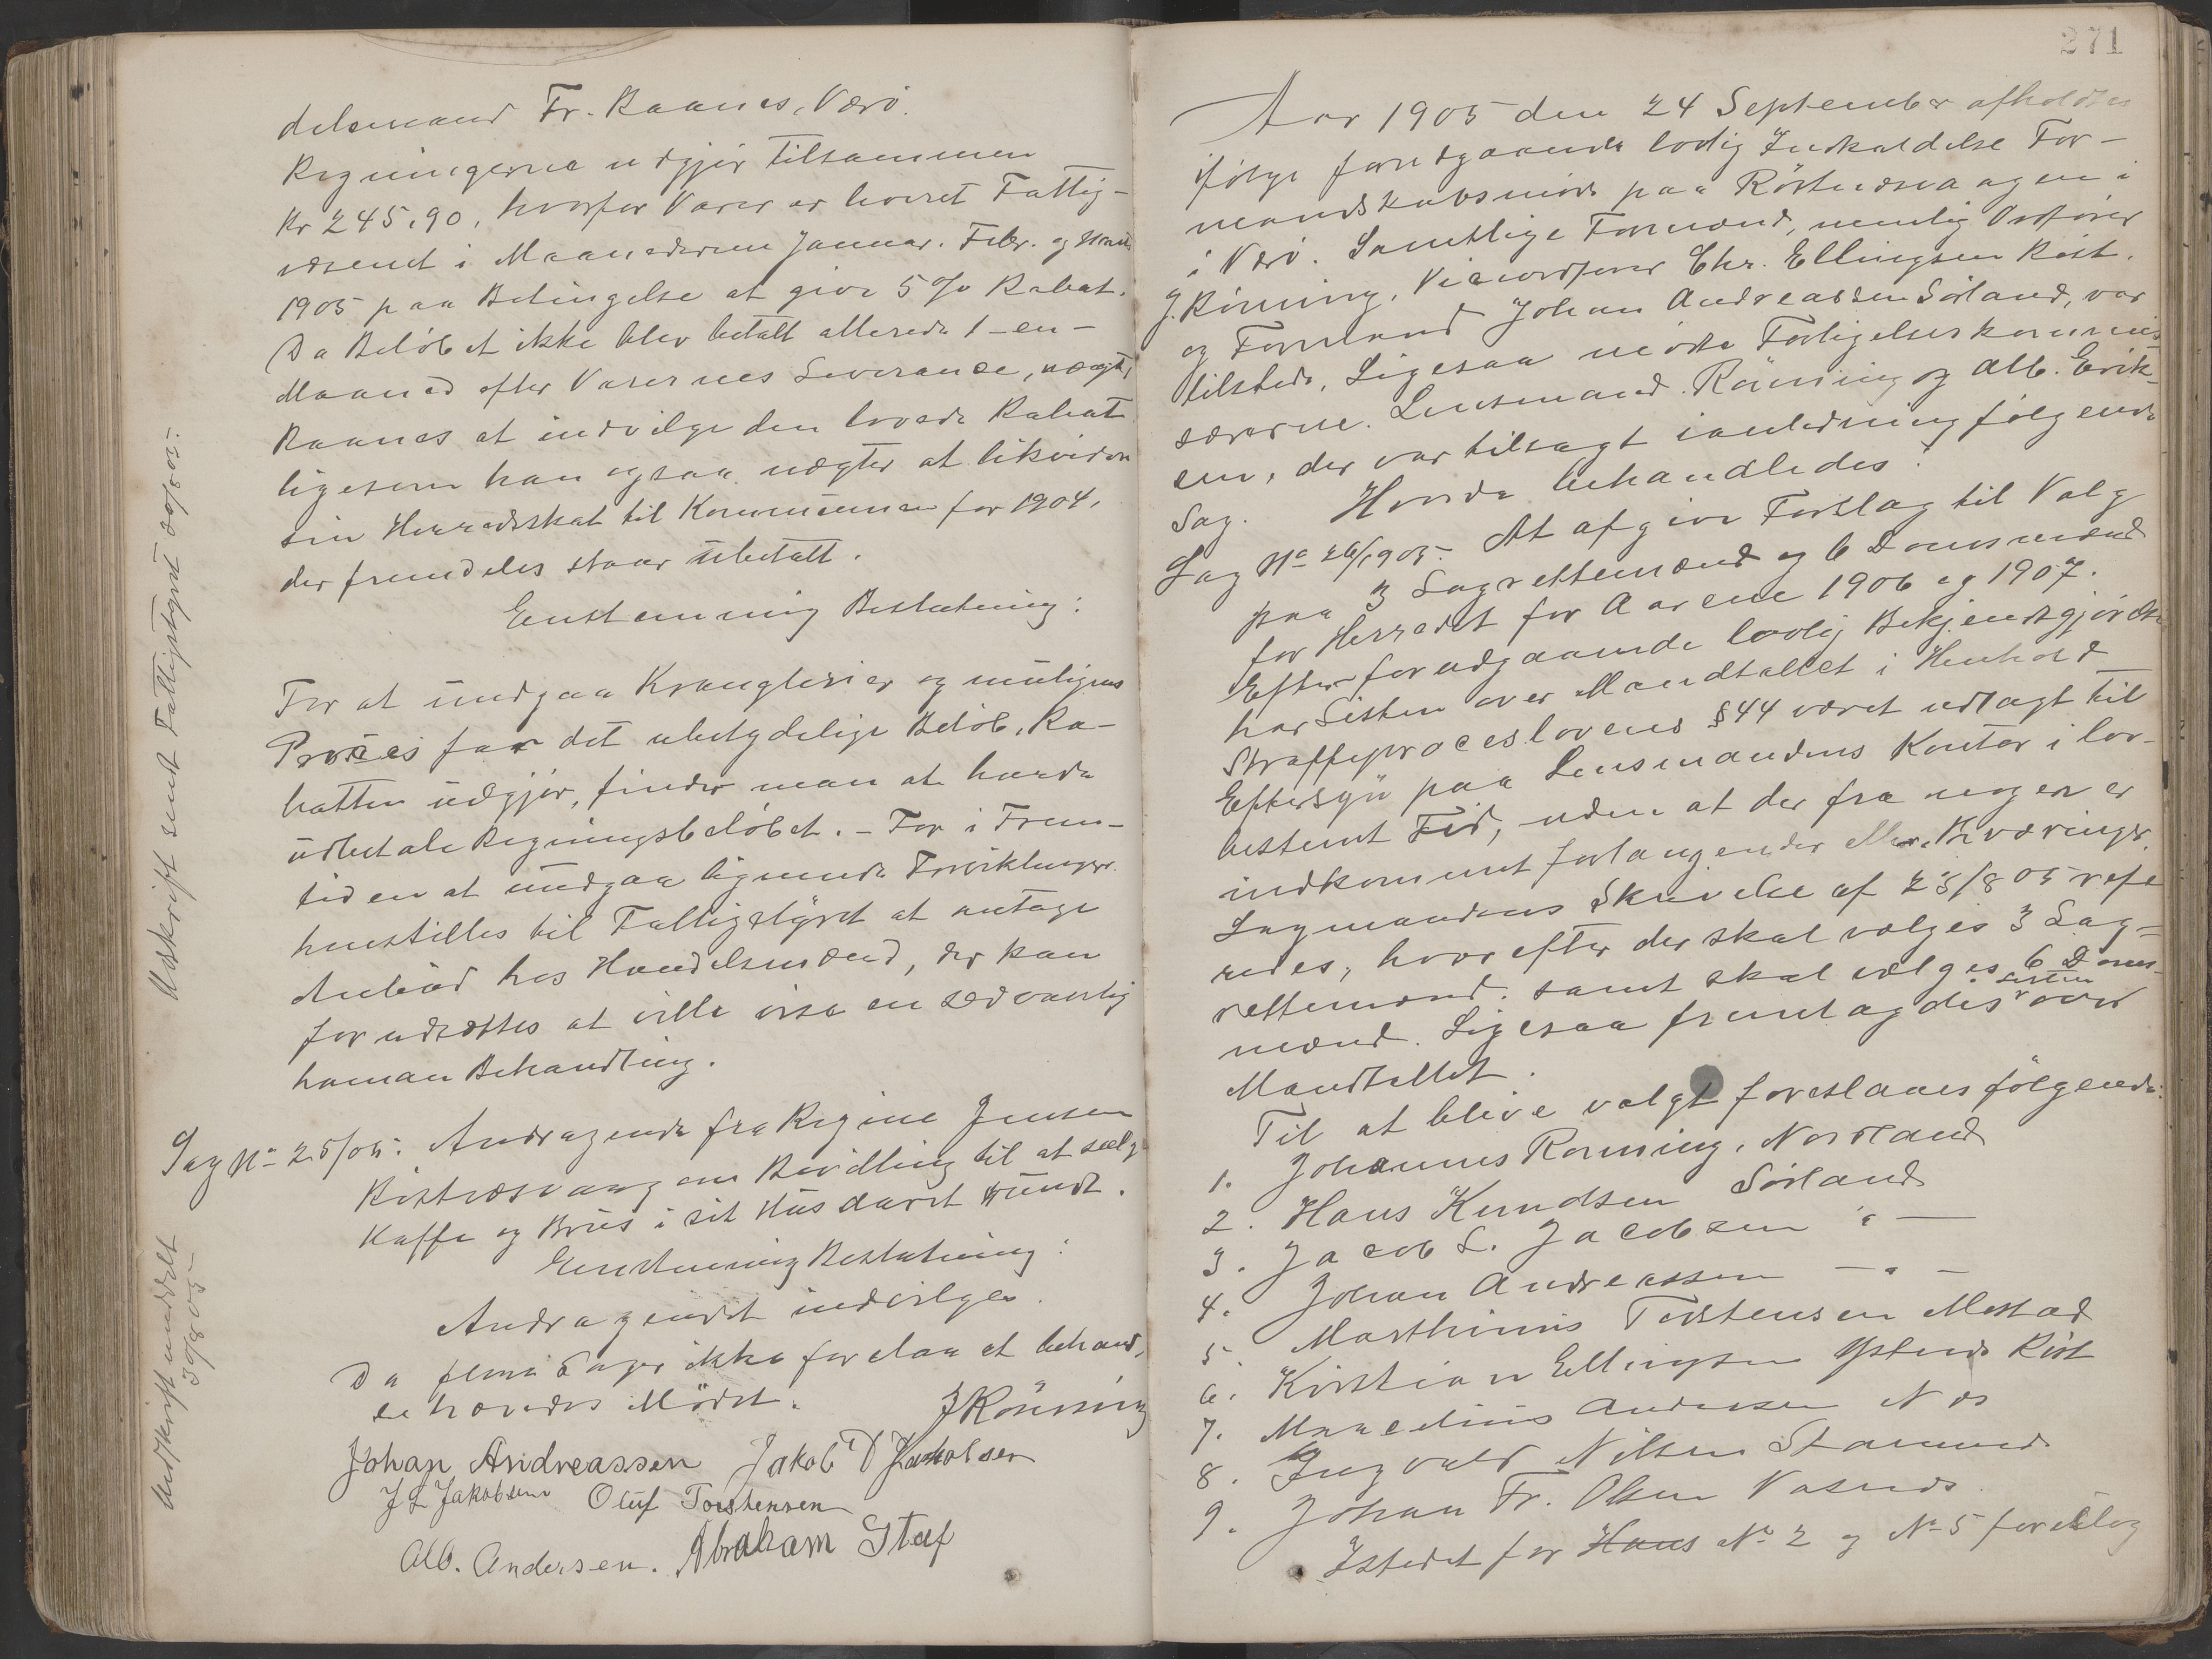 delsmand Fr. Raanes, Værö.
Regningerne udgjør tilsammen
Kr 245,90, hvorfor Varer er leveret Fattig-
væsenet i Maanederne Januar. Febr. og Marts
1905 paa Betingelse at give 5 % Rabat.
Da Beløbet ikke blev betalt allerede 1-en-
Maaned efter Varernes Leverance, nægter
Raanes at indvilge den lovede Rabat
ligesom han ogsaa nægter at likvidere
sin Herredsskat til Kommunen for 1904,
der fremdeles staar übetalt.
Enstemmig Beslutning:
For at ündgaa Kranglerier og müligens
Proces for det ubetydelige Beløb, Ra-
batten üdgjør, finder man at burde
üdbetale Regningsbeløbet. - For i Frem-
tiden at ündgaa lignende Forviklinger
henstilles til Fattigstyret at antage
Anbüd hos Handelsmænd, der kan
forudsættes at ville vise en sædvanlig
human Behandling.
Sag No 25/05. Andragende fra Regine Jensen
Röstnæsvaag om Bevilling til at sælge
Kaffe og Brüs i sit Hus dersteds.
Enstemmig Beslutning:
Andragendet indvilges.
Da flere Sager ikke forelaa at behand-
le hævedes Mødet.
J Rönning
Johan Andreassen Jakob D Jakobsen
J L Jakobsen Oluf Torstensen
Alb. Andersen. Abraham Staf
Udskrift sendt Fattigstyret 30/8 05.
Udskrift meddelt
30/8 05
271
Aar 1905 den 24 September afholdtes
ifølge forudgaaende lovlig Indkaldelse For-
mandskabsmøde paa Röstnæsvaagen i
i Værö. Samtlige Formænd, nemlig Ordfører
J. Rönning, Viceordfører Chr. Ellingsen Röst,
og Formand Johan Andreassen Sørland, var
tilstede. Ligesaa mødte Forligelseskommis-
særerne. Lensmand Rönning og Alb. Erik-
sen, der var tilsagt i anledning følgende
Sag. Hvorda behandledes:
Sag No 26/1905. At afgive Forslag til Valg
paa 3 Lagrettemænd og 6 Domsmænd
for Herredet for Aarene 1906 og 1907.
Efter forudgaaende lovlig Bekjendtgjørelse
har Listen over Mandtallet i Henhold
Straffeproceslovens § 44 været udlagt til
Eftersyn paa Lensmandens Kontor i lov-
bestemt Tid, uden at der fra nogen er
indkommet forlangender eller Indværinger.
Lagmandens Skrivelse af 23/8 05 refe
redes, hvorefter der skal vælges 3 Lag-
rettemænd. samt skal vælges 6 Doms-
mænd. Ligesaa fremlagdes listen over
Mandtallet.
Til at blive valgt foreslaaes følgende:
1. Johannes Rönning, Nordland
2. Hans Knudsen Sørland
3. Jacob L. Jacobsen " —
4. Johan Andreassen — " —
5. Marthinus Torstensen Mostad
6. Kristian Ellingsen Ystnes Röst
7. Marselius Andersen Næs
8. Ingvald Nilsen Stamnes
9. Johan Fr. Olsen Vasnes
Istedet for Hans No 2 og No 5 foreslog